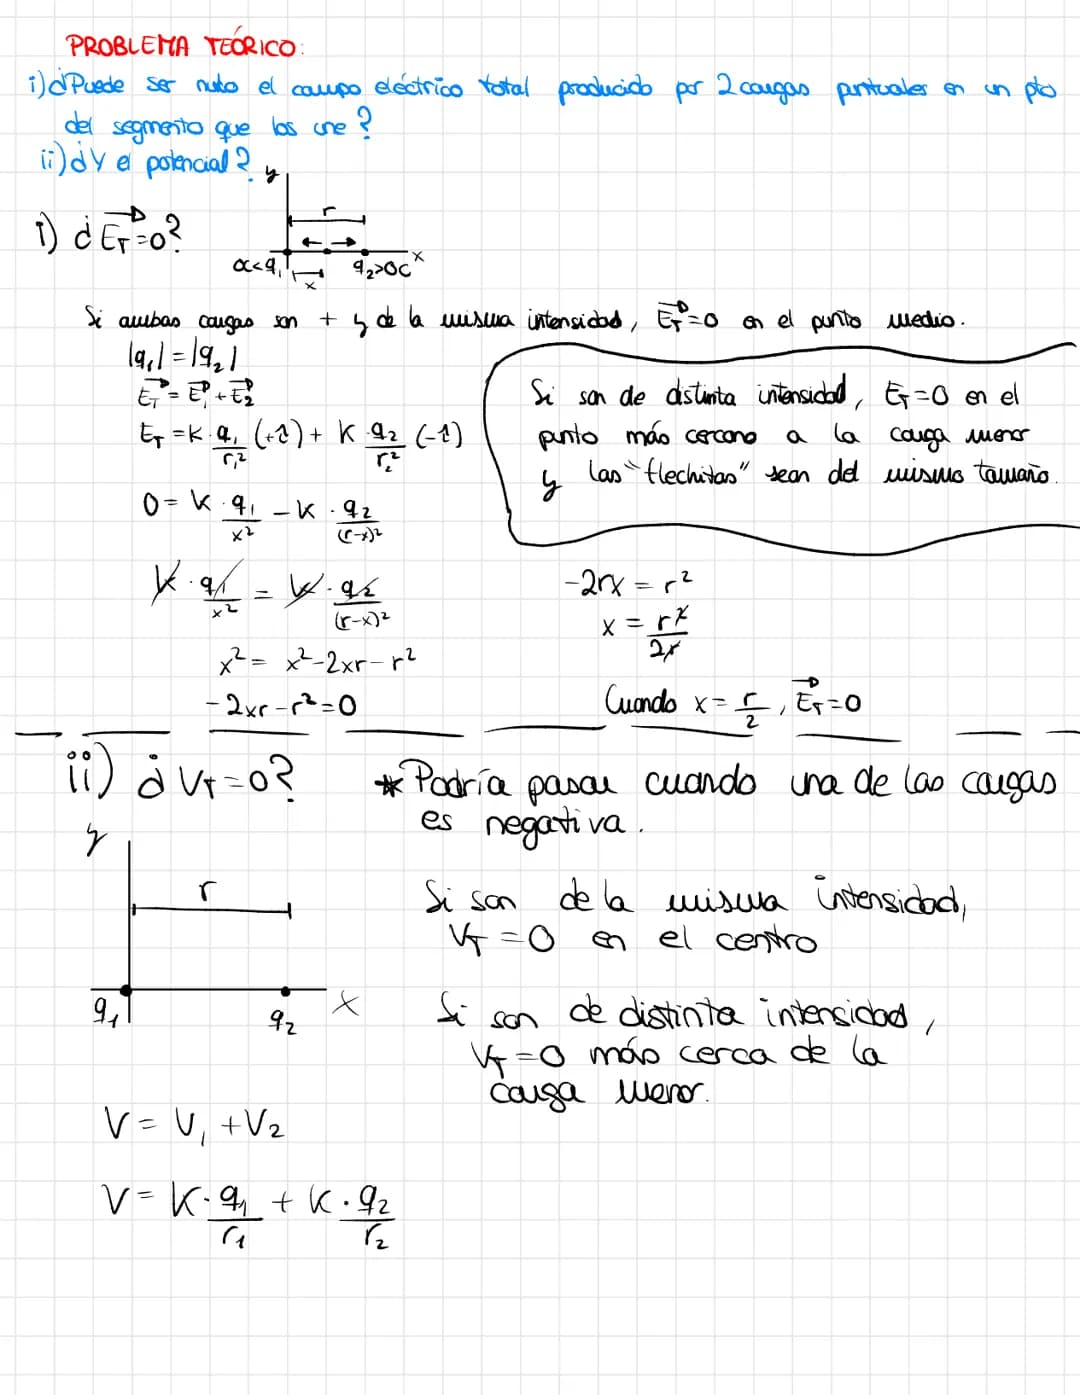 PROBLEMA TEÓRICO:
i) ¿Puede ser nulo el campo eléctrico total producido por 2 cargas puntuales en un pto
del segmento que las une?
ii) ¿Y el potencial?
y
i) ¿E_T=0?
r
0C<q₁
x
q₂>0C
x
Si ambas cargas son + y de la misma intensidad, E_T=0 en el punto medio.
|q₁|=|q₂|
E_T = E₁ + E₂
E_T = K · q₁/r₁² (+1) + K · q₂/r₂² (-1)
0 = K · q₁/x² - K · q₂/(r-x)²
K · q₁/x² = K · q₂/(r-x)²
x² = x² - 2xr - r²
-2xr - r² = 0
Si son de distinta intensidad, E_T=0 en el
punto más cercano a la carga menor
y las "flechitas" sean del mismo tamaño.
-2rx = r²
x = r²/2r
Cuando x = r/2, E_T=0
ii) ¿V_T=0?
y
r
q₁
q₂
x
V = V₁ + V₂
V = K · q₁/r₁ + K · q₂/r₂
* Podría pasar cuando una de las cargas
es negativa.
Si son de la misma intensidad,
V_T=0 en el centro
Si son de distinta intensidad,
V_T=0 más cerca de la
carga menor.